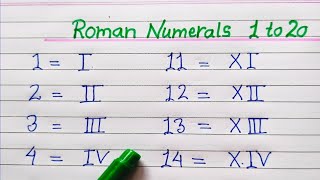 Roman Numerals 1 to 20
1 = I 11 = XI
2 = II 12 = XII
3 = III 13 = XIII
4 = IV 14 = X.IV